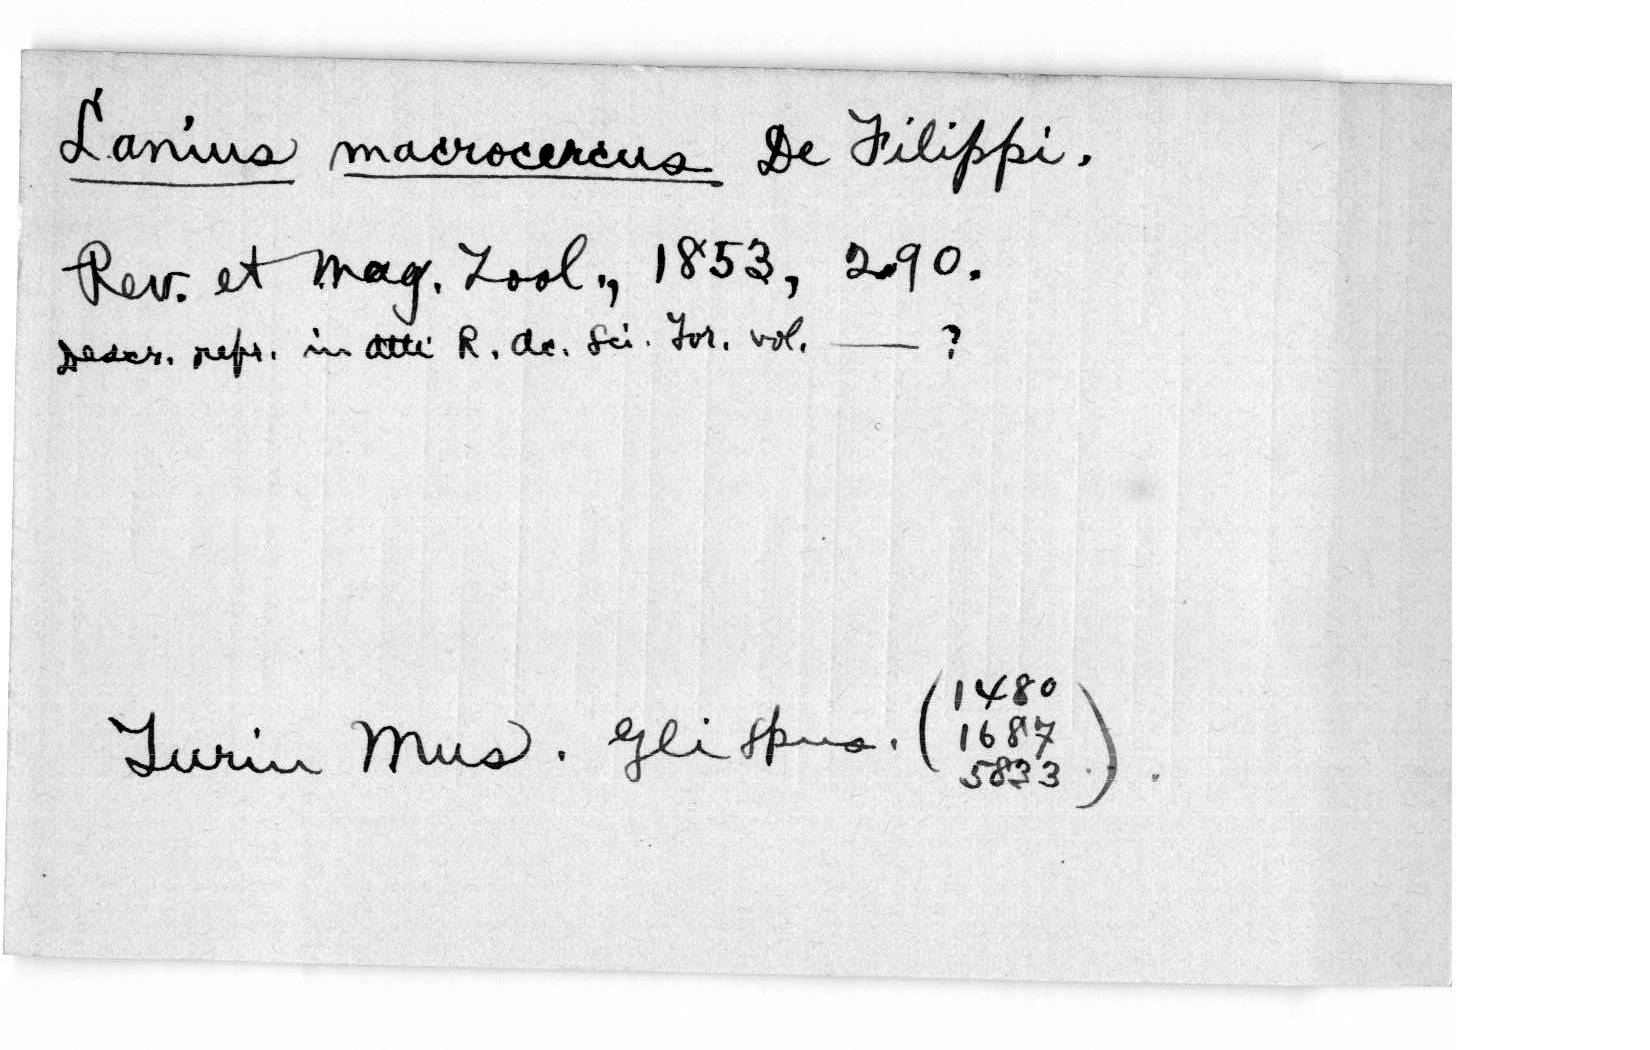 Lanius macrocercus De Filippi.
Rev. et Mag. Zool., 1853, 290.
Descr. repr. in Atti R. Ac. Sci. Tor. vol. — ?
Turin Mus. Gli spms. (1480
1687
5833).